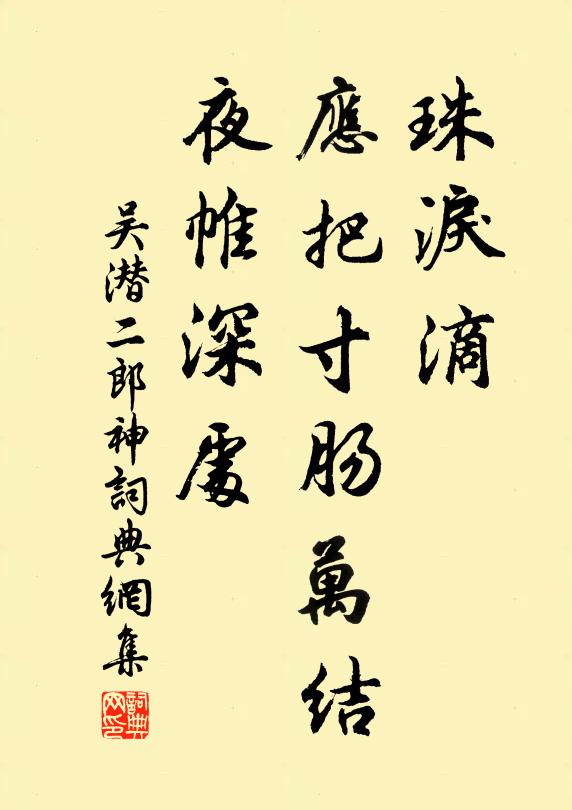 珠淚滴
應把寸肠萬結
夜帷深處
吴潜二郎神詞典網集
詞典网印